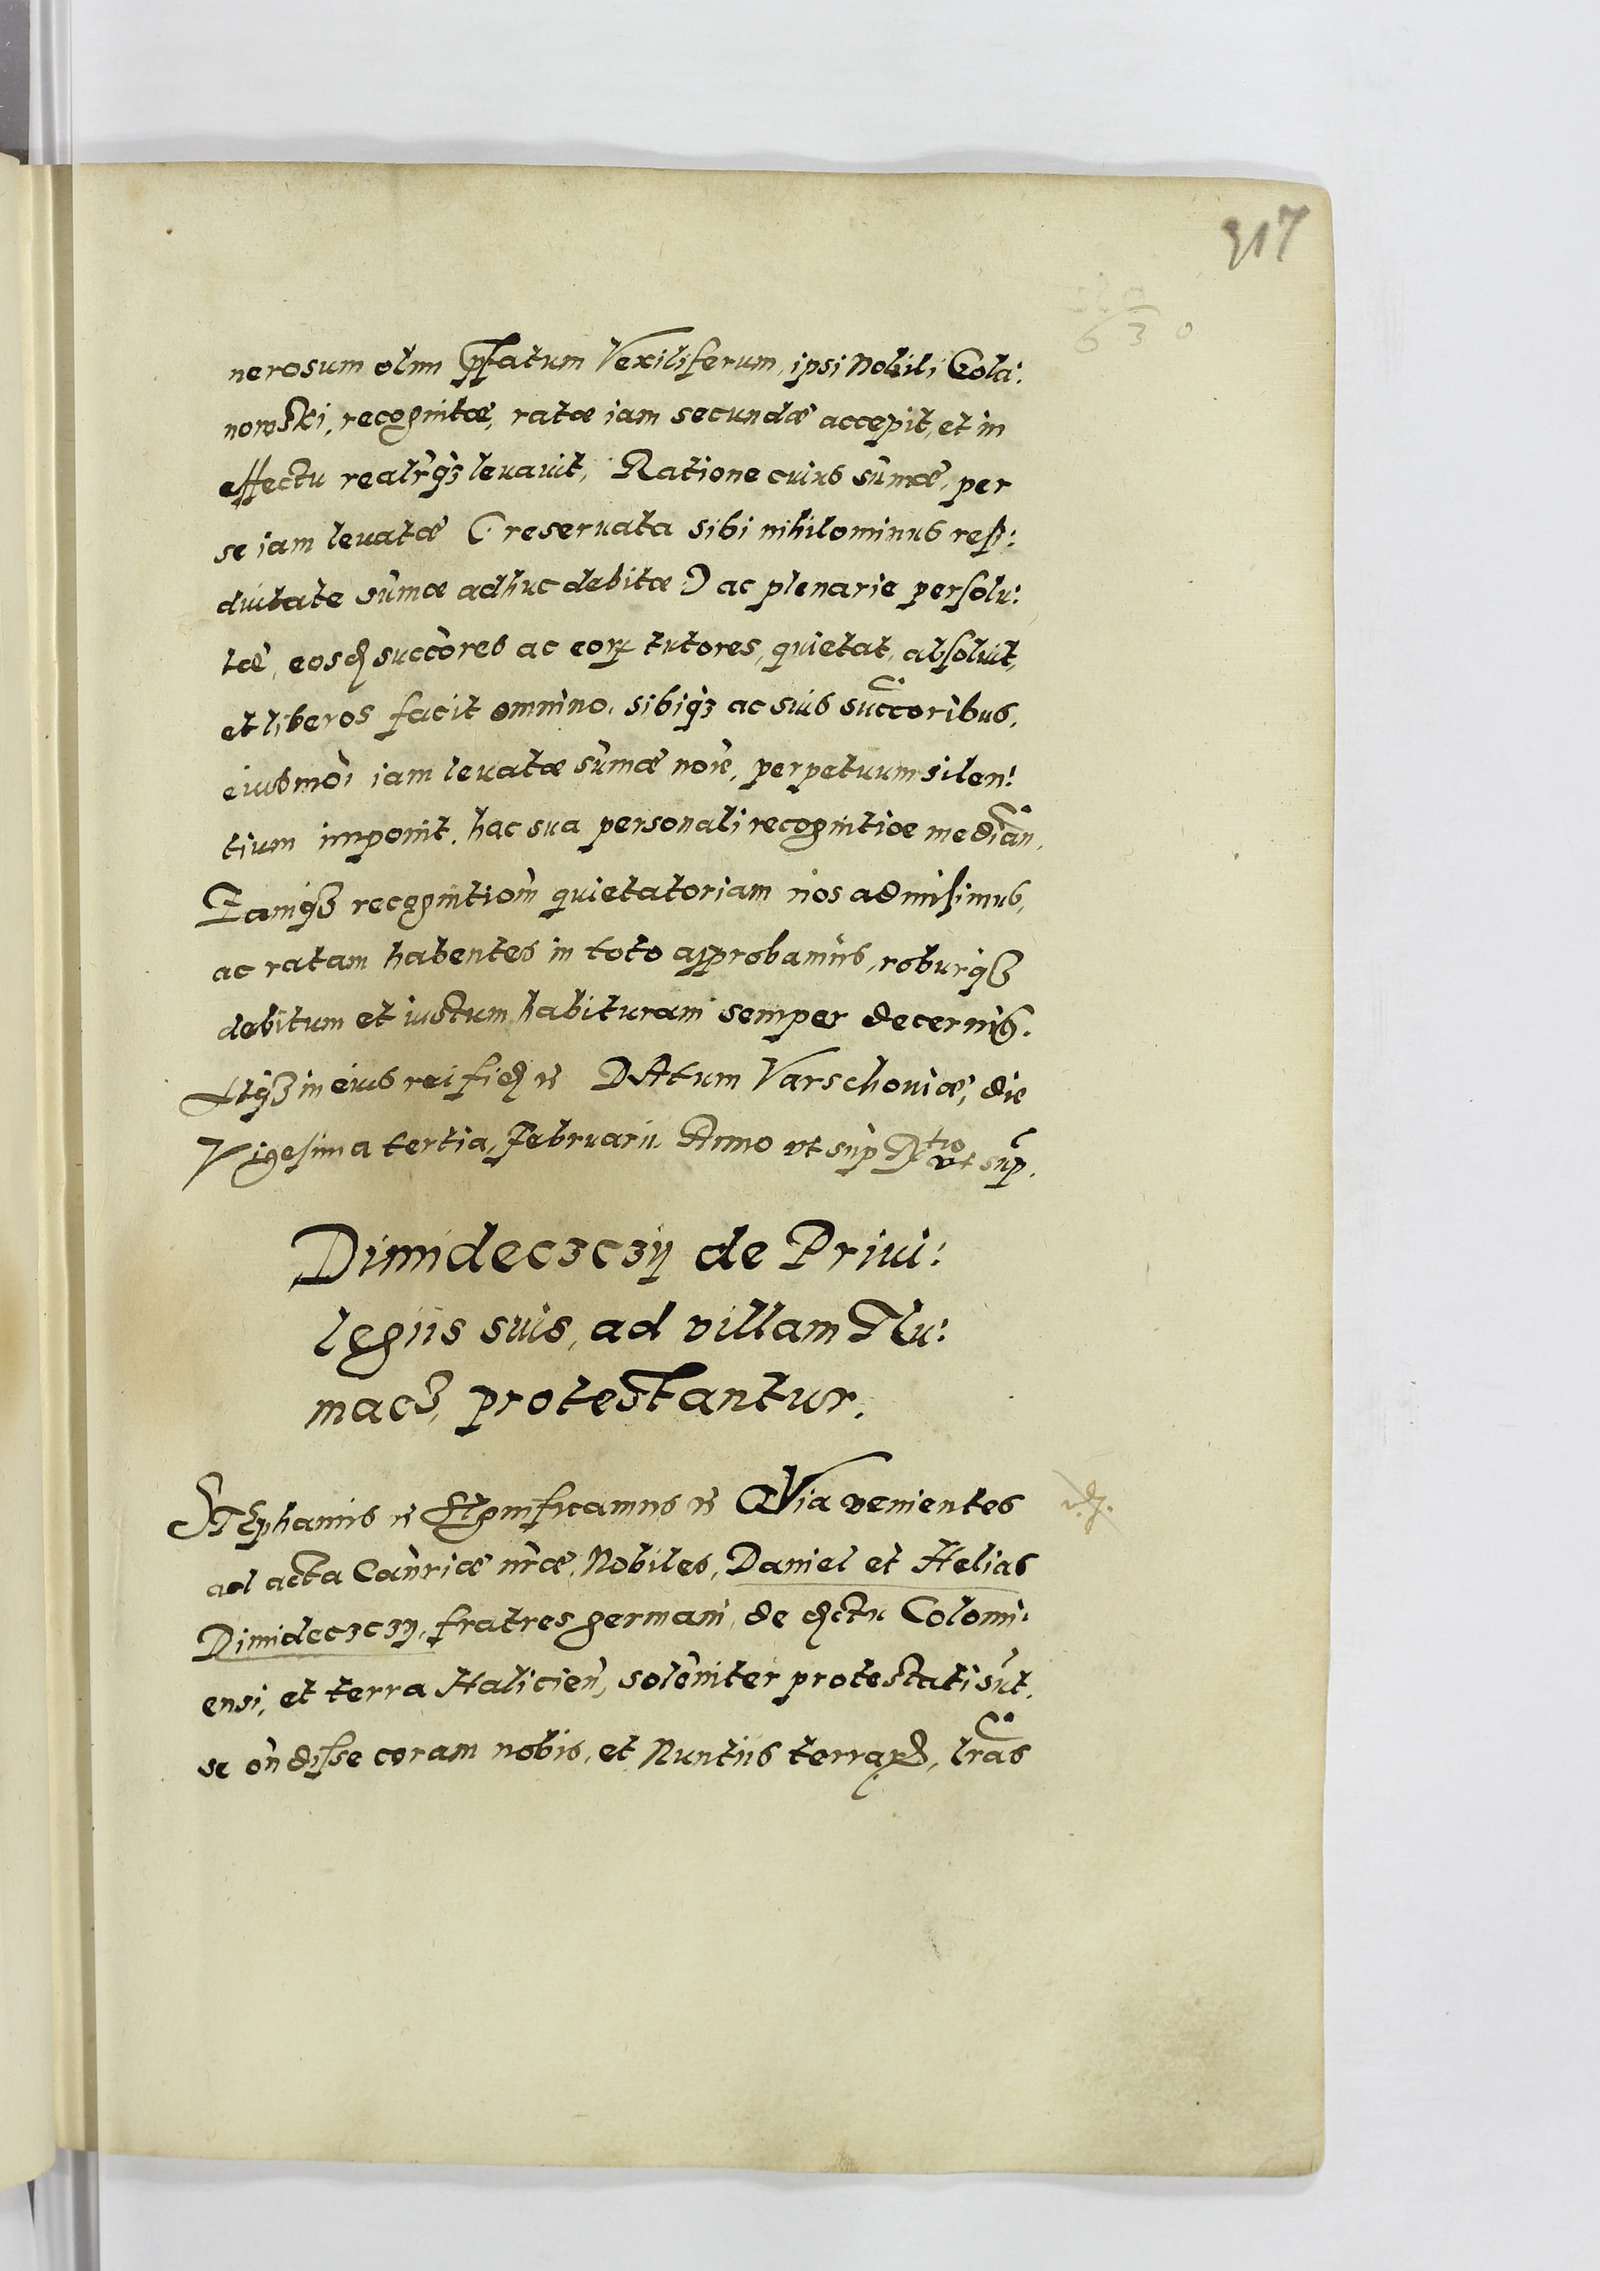 317
630
nerosum olim p̃fatum Vexiliferum, ipsi Nobili Gola:
nowski, recognitæ, ratæ iam secundæ accepit, et in
effectu realr̀q̃ʒ leuauit, Ratione cuius sum̀æ, per
se iam leuatæ (: reseruata sibi nihilominus resi:
duitate sum̀æ adhuc debitæ :) ac plenarie persolu:
tæ, eosq̃ succores ac eorꝝ tutores, quietat, absoluit,
et liberos facit omnino, sibiq̃ʒ ac suis succoribus,
eiusmòi iam leuatæ sum̀æ noìe, perpetuum silen:
tium imponit, hac sua personali recognitiòe medìan,
Eamq̃ʒ recognitiom̀ quietatoriam nos admisimus,
ac ratam habentes in toto approbamus, roburq̃ʒ
debitum et iustum habituram semper decernim̃9.
In eius rei fidẽ etc̃ DAtum Varschoviæ, die
Vigesima tertia, Februarii Anno vt sup̀ R̃ tio vt sup̃.
Dimideczczy de Priui:
legiis suis, ad villam Tlu:
macʒ, protestantur.
STEphanus etc̃ Significamus etc̃ QVia venientes
ad acta Canr̀iæ nr̀æ, Nobiles, Daniel et Helias
Dimideczczy, fratres germani, de dictu Colomi:
ensi, et terra Halicień, solèniter protestati sùt,
se òndisse coram nobis, et Nuntiis terrarꝝ, lràs